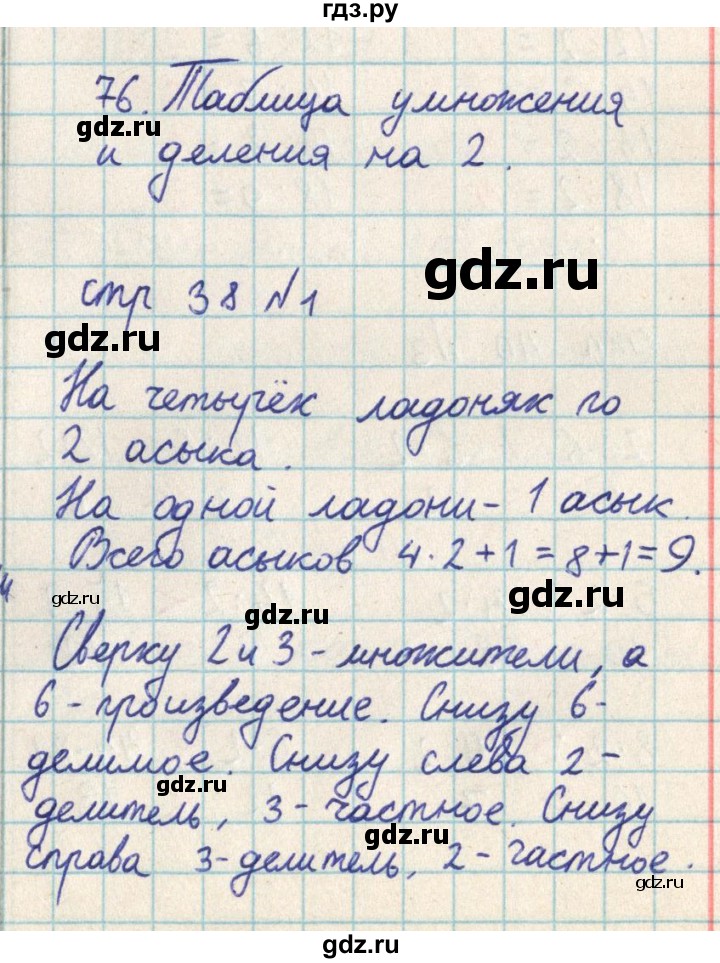 гдз.ру
76. Таблица умножения
gdz.ru
и деления на 2.
gdz.ru
стр 38 №1
gdz.ru
На четырёх ладонях по
2 асыка.
На одной ладони - 1 асык.
Всего асыков 4·2+1=8+1=9.
gdz.ru
gdz.ru
Сверху 2 и 3 - множители, а
6 - произведение. Снизу 6-
делимое. Снизу слева 2-
делитель, 3- частное. Снизу
gdz.ru
справа 3-делитель, 2- частное.
gdz.ru
gdz.ru